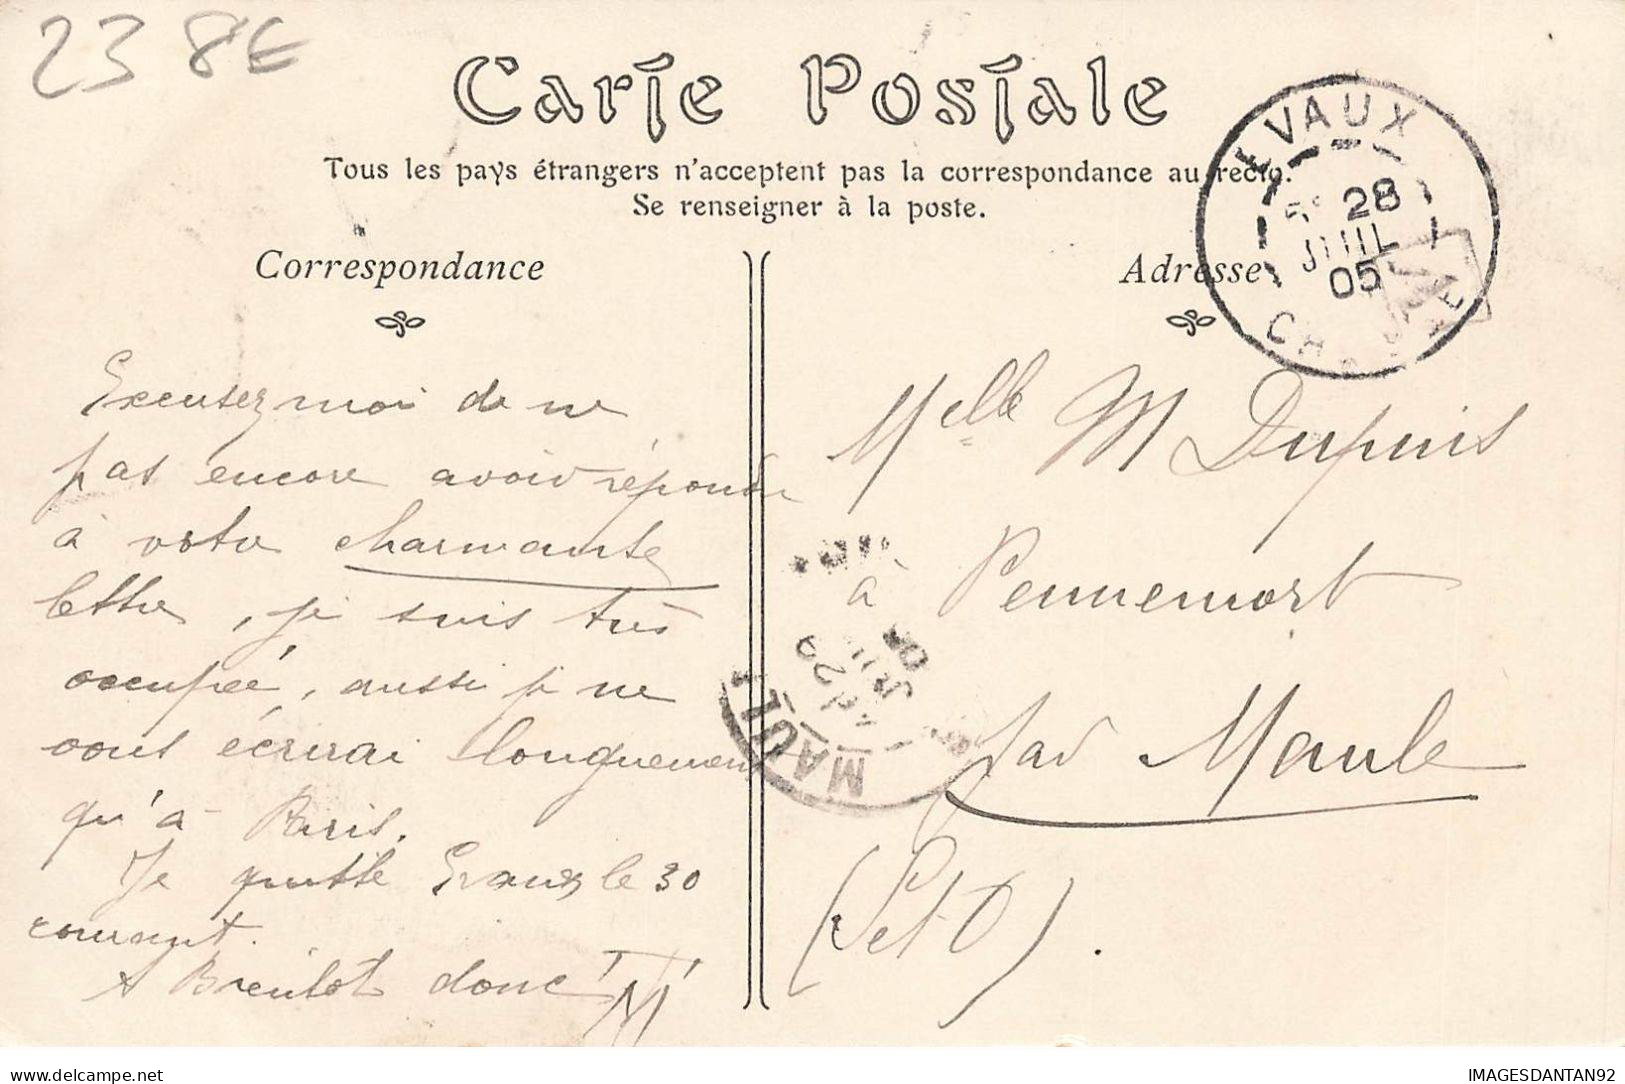 23 8E
Carte Postale
Tous les pays étrangers n'acceptent pas la correspondance au recto.
Se renseigner à la poste.
EVAUX
28
JUIL
05
CREUSE
Correspondance
Excusez moi de ne
pas encore avoir répondu
à votre charmante
lettre, je suis très
occupée, aussi je ne
vous écrirai longuement
qu'à Paris.
Je quitte Evaux le 30
courant.
A Bientôt donc
M
Adresse
Melle M Dupuis
à Pennemort
par Maule
(S et O).
MAULE
29
JUIL
05
delcampe.net
IMAGESDANTAN92